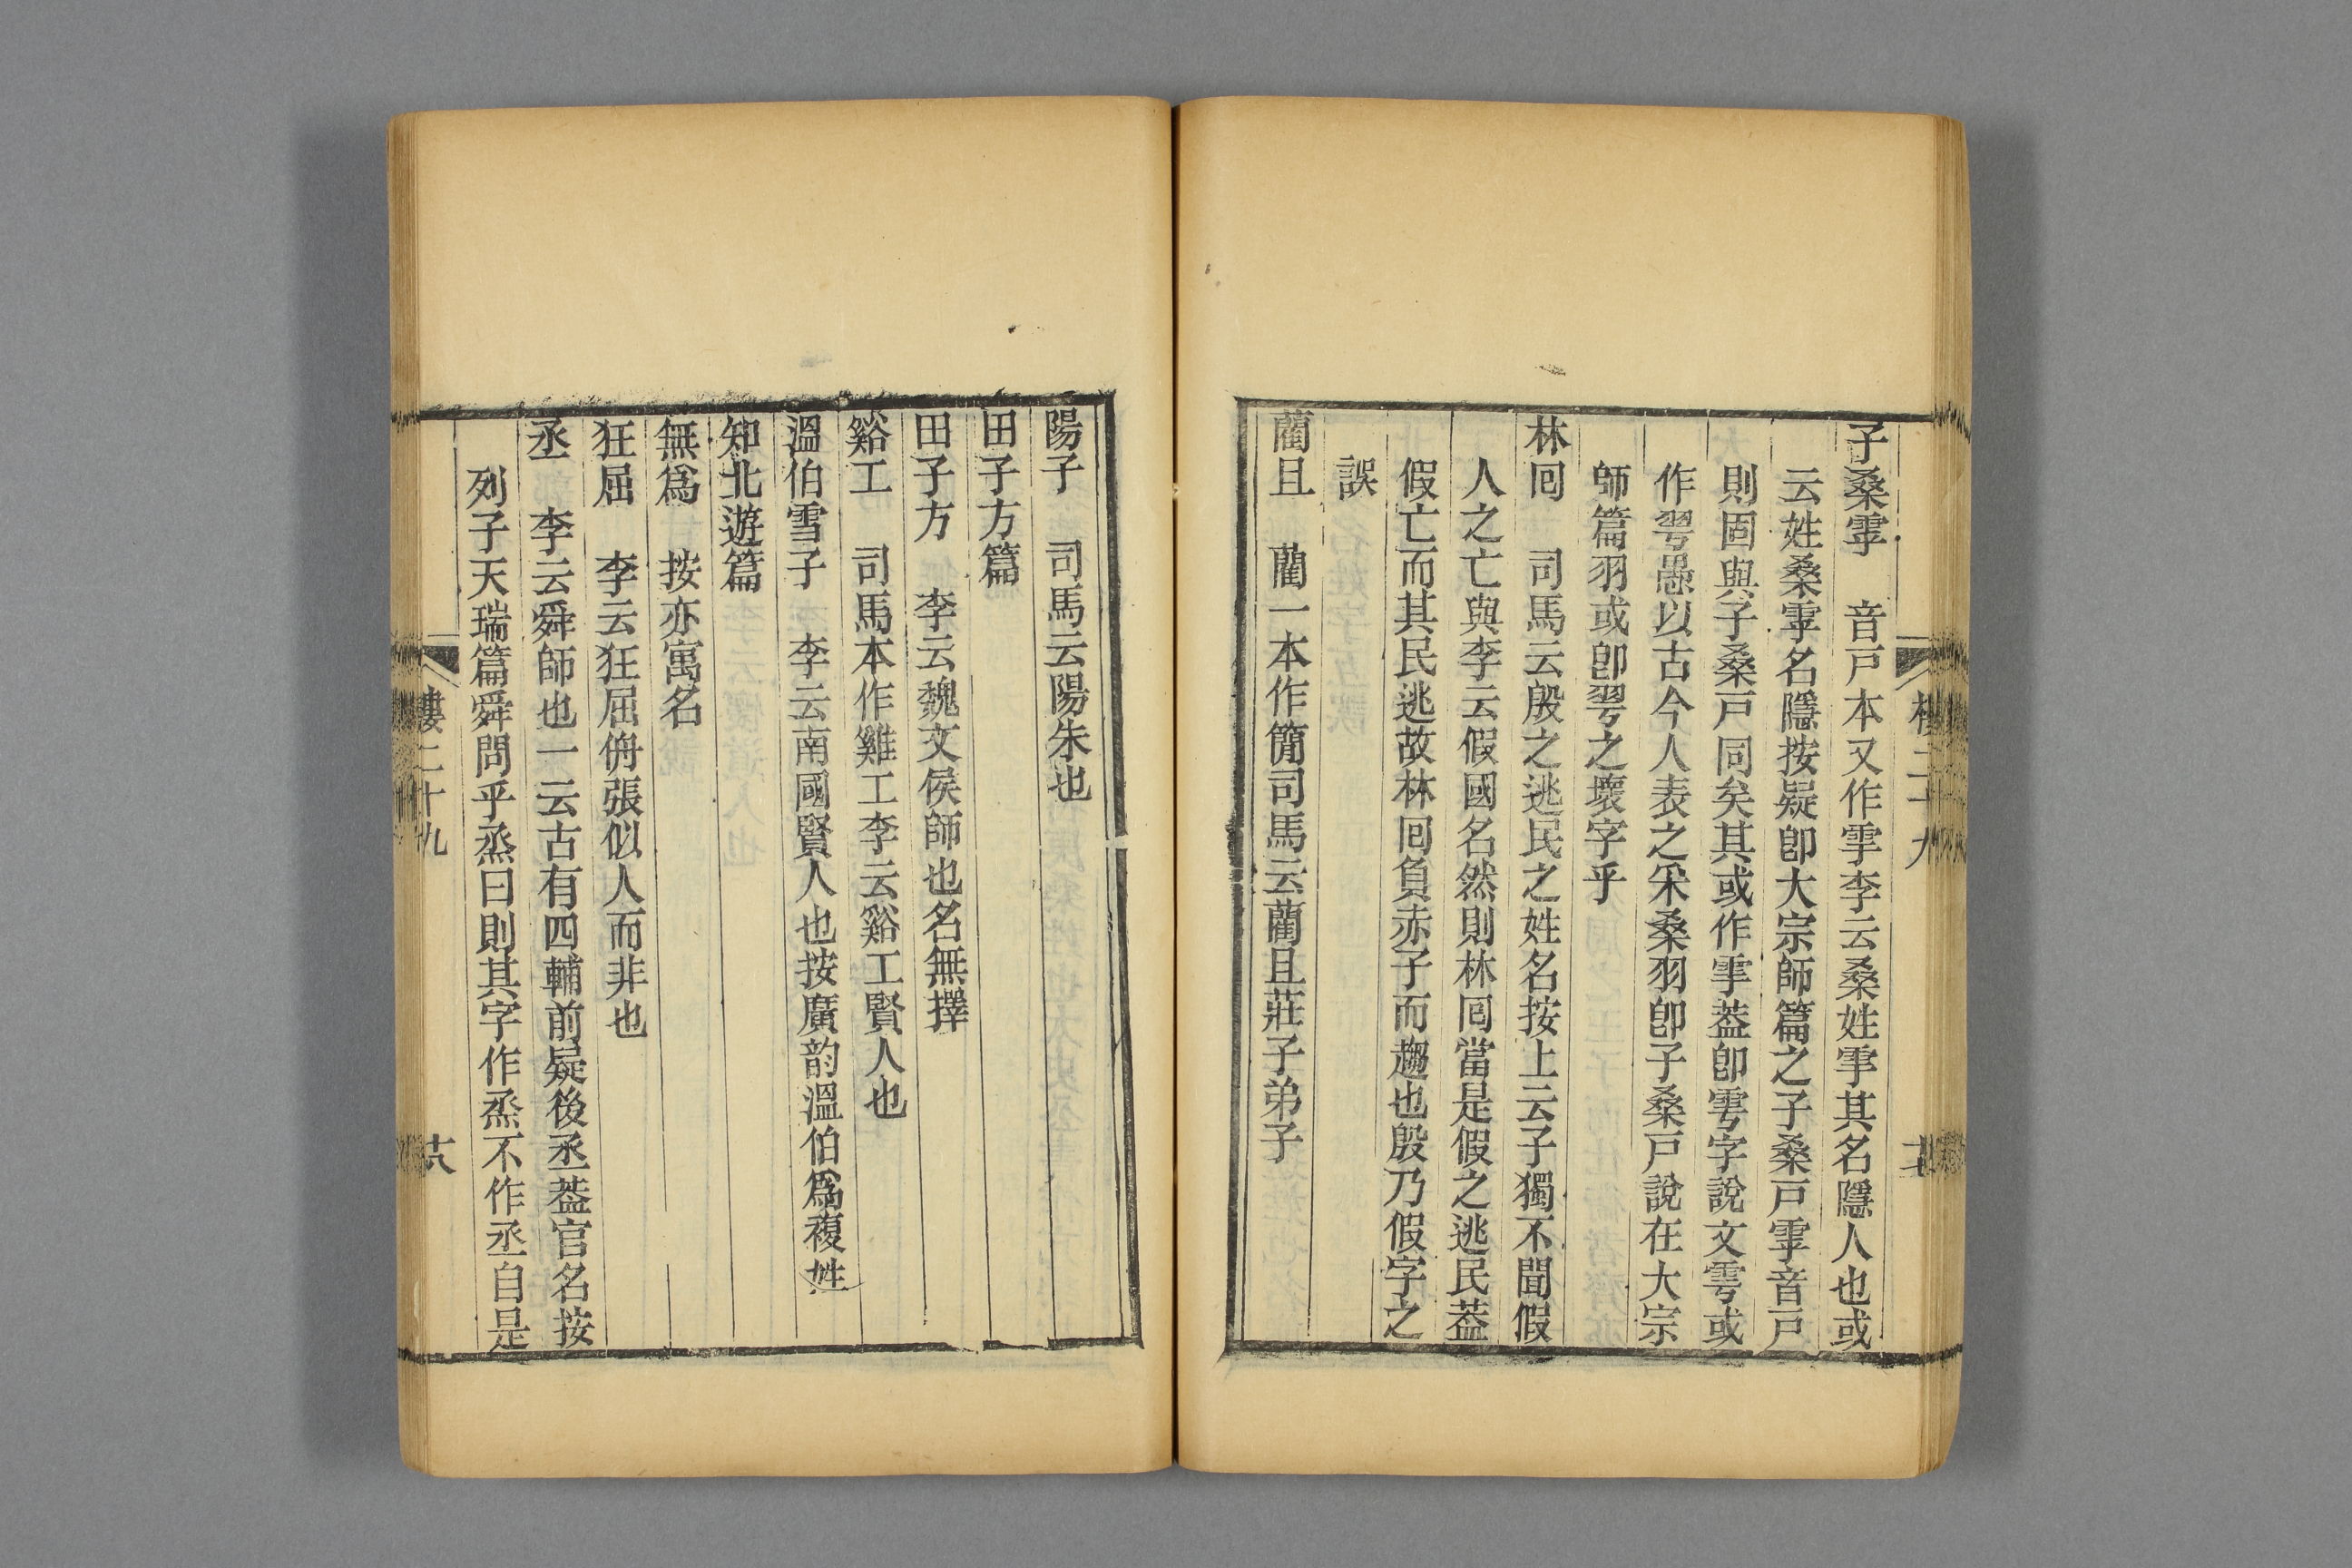 子桑雽　音戸本又作雽李云桑姓雽其名隱人也或
云姓桑雽名隱按疑卽大宗師篇之子桑戸雽音戸
則固與子桑戸同矣其或作雽葢卽雩字說文雩或
作𦏻愚以古今人表之㭒桑羽卽子桑戸說在大宗
師篇羽或卽𦏻之壞字乎
林囘　司馬云殷之逃民之姓名按上云子獨不聞假
人之亡與李云假國名然則林囘當是假之逃民葢
假亡而其民逃故林囘負赤子而趨也殷乃假字之
誤
藺且　藺一本作簡司馬云藺且莊子弟子
陽子　司馬云陽朱也
田子方篇
田子方　李云魏文侯師也名無擇
谿工　司馬本作雞工李云谿工賢人也
溫伯雪子　李云南國賢人也按廣韵溫伯爲複姓
知北遊篇
無爲　按亦寓名
狂屈　李云狂屈侜張似人而非也
丞　李云舜師也一云古有四輔前疑後丞葢官名按
列子天瑞篇舜問乎烝曰則其字作烝不作丞自是
樓二十九
大